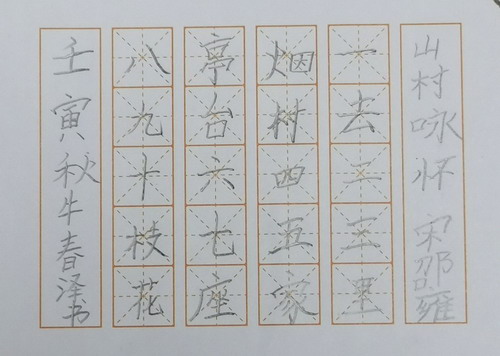 山村咏怀 宋邵雍
一去二三里
烟村四五家
亭台六七座
八九十枝花
壬寅秋牛春泽书